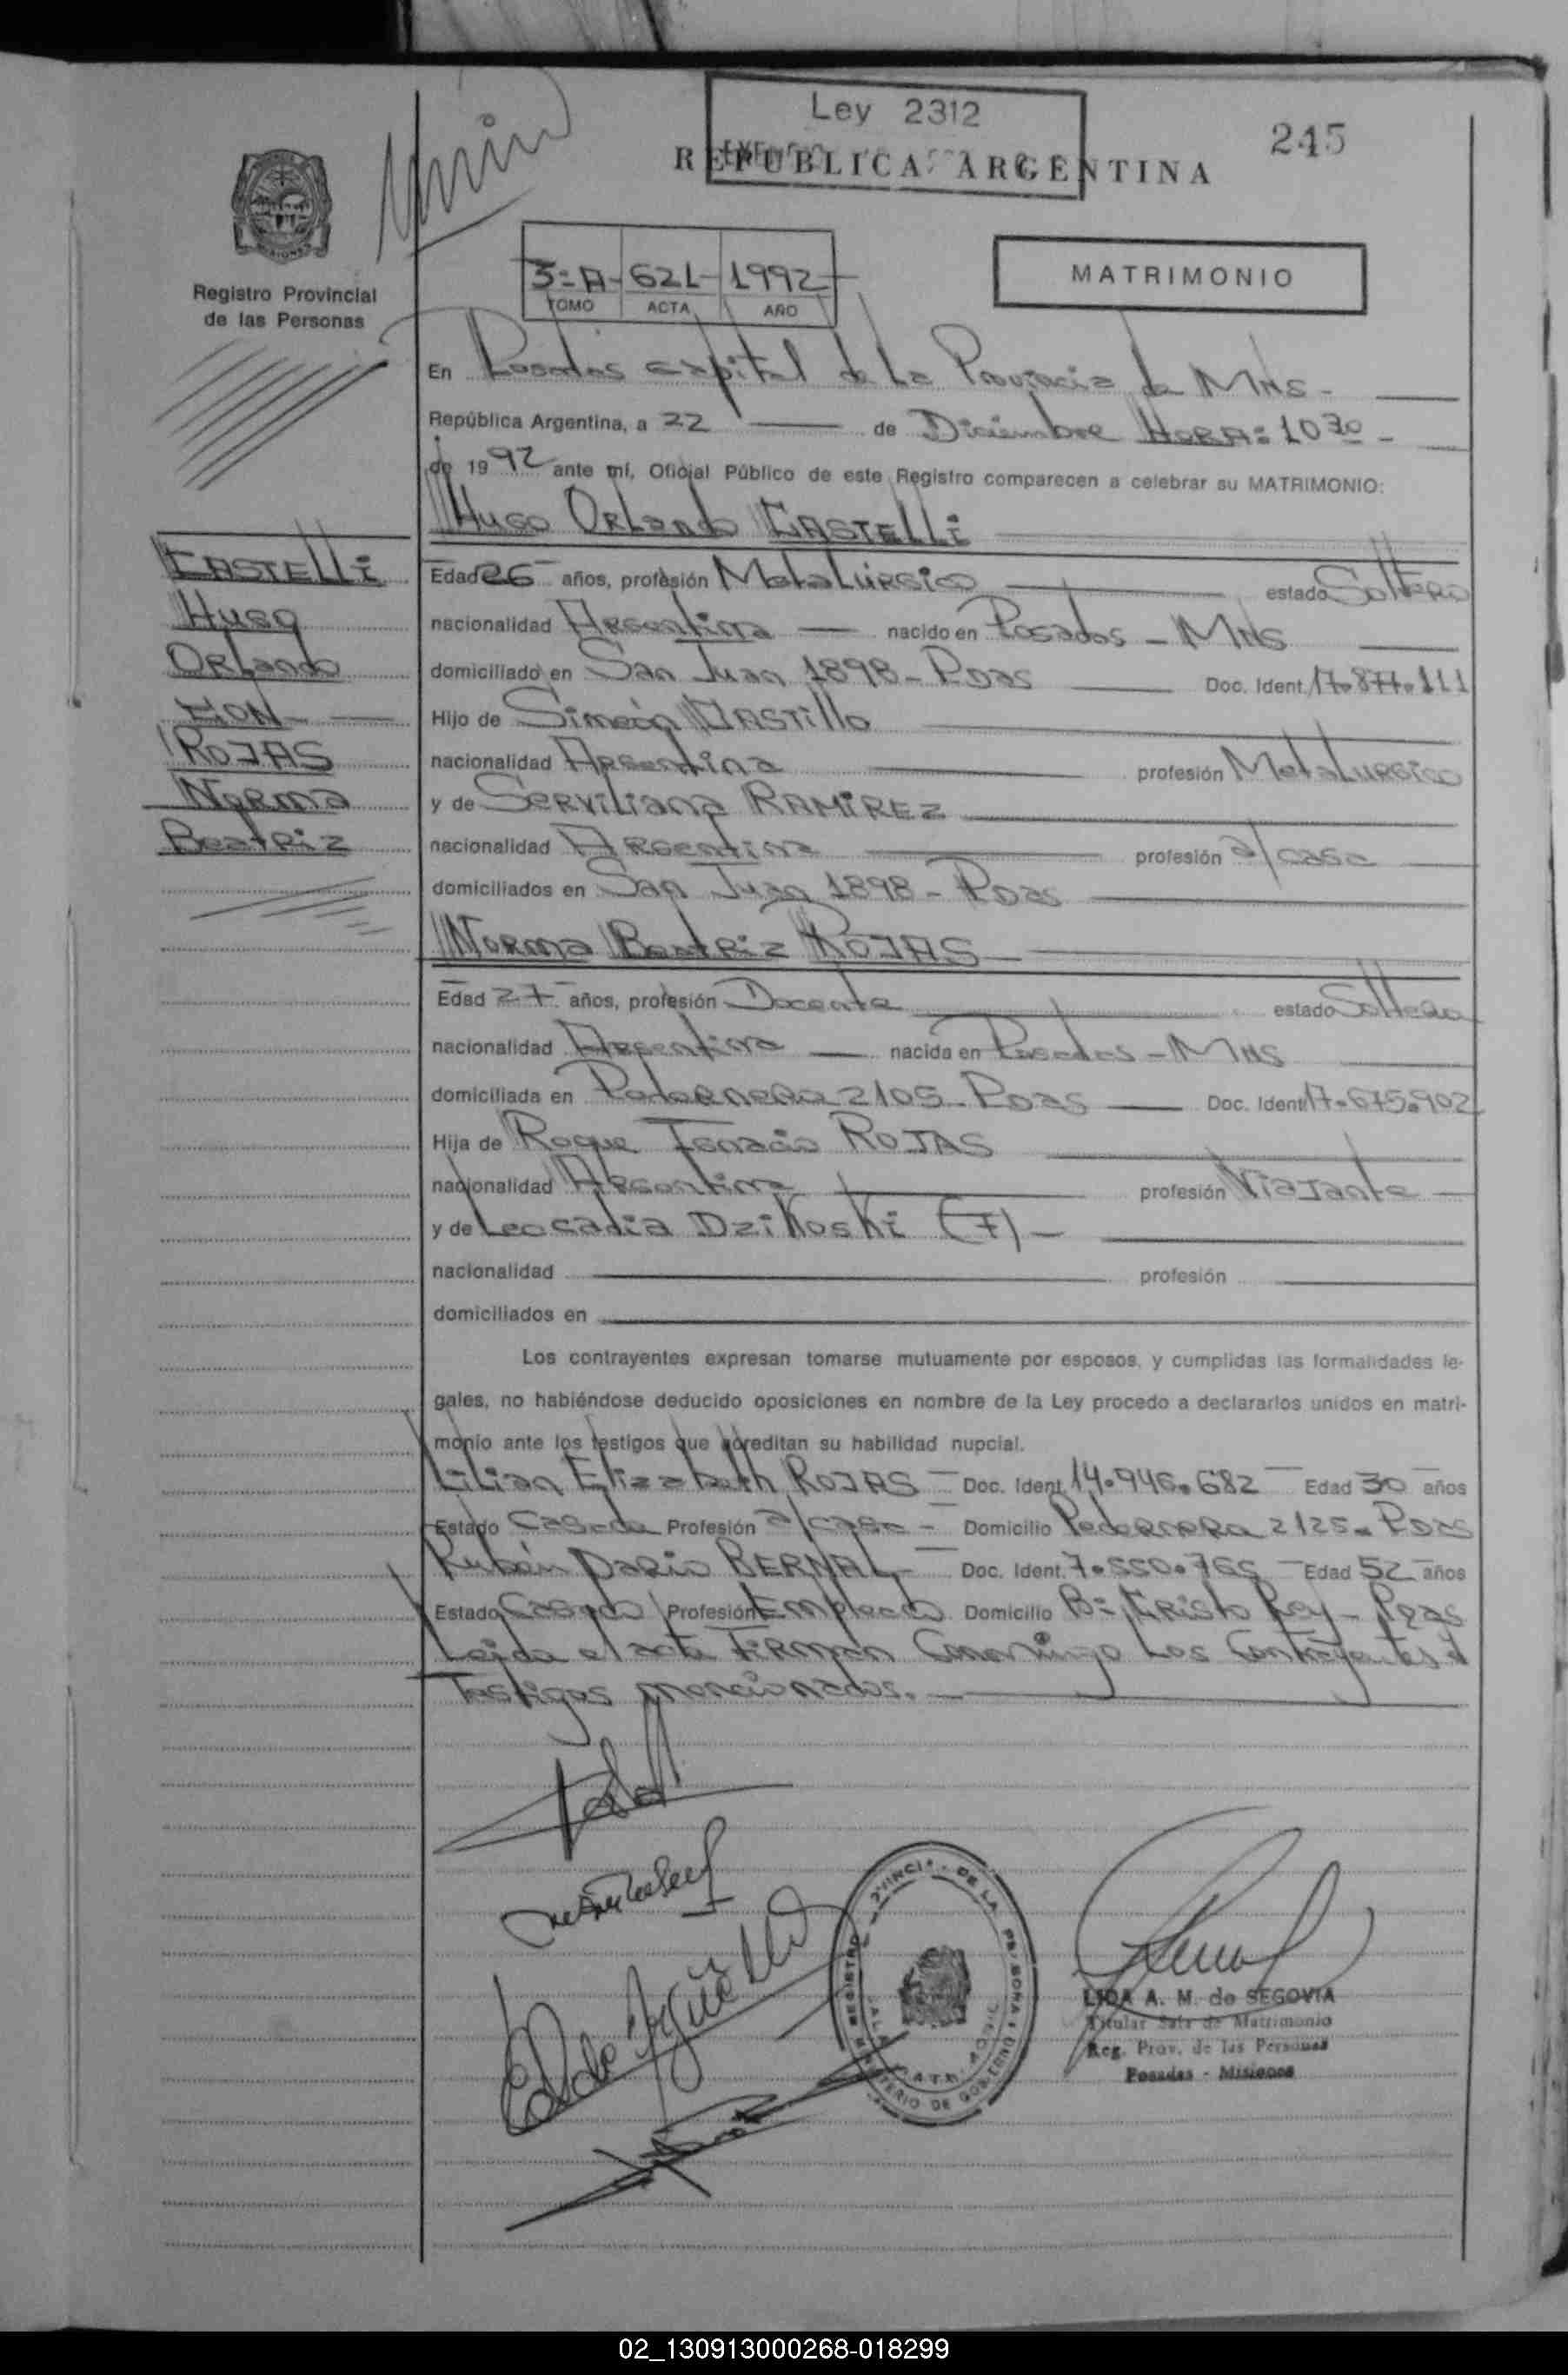 Ley 2312
245
REPUBLICA ARGENTINA
MISIONES
Registro Provincial
de las Personas
3=A- 621- 1992
TOMO ACTA AÑO
MATRIMONIO
En Posadas capital de la Provincia de Mns-
República Argentina, a 22 de Diciembre HORA: 10 30 -
de 1992 ante mí, Oficial Público de este Registro comparecen a celebrar su MATRIMONIO:
Hugo Orlando CASTELLi
CASTELLi
Hugo
Orlando
CON
ROJAS
Norma
Beatriz
Edad 26 años, profesión Metalúrgico estado Soltero
nacionalidad Argentina nacido en Posadas - Mns
domiciliado en San Juan 1898 - Pdas Doc. Ident. 17.877.111
Hijo de Simeón CASTillo
nacionalidad Argentina profesión Metalurgico
y de Serviliana RAMIREZ
nacionalidad Argentina profesión a/casa
domiciliados en San Juan 1898 - Pdas
Norma Beatriz ROJAS
Edad 27 años, profesión Docente estado Soltera
nacionalidad Argentina nacida en Posadas - Mns
domiciliada en Pedernera 2105 - Pdas Doc. Ident. 17.675.902
Hija de Roque Ignacio ROJAS
nacionalidad Argentina profesión Viajante
y de Leocadia Dzikoski (F) -
nacionalidad profesión
domiciliados en
Los contrayentes expresan tomarse mutuamente por esposos, y cumplidas las formalidades le-
gales, no habiéndose deducido oposiciones en nombre de la Ley procedo a declararlos unidos en matri-
monio ante los testigos que acreditan su habilidad nupcial.
Lilian Elizabeth ROJAS - Doc. Ident. 14.946.682 Edad 30 años
Estado Casada Profesión a/casa - Domicilio Pedernera 2125 - Pdas
Rubén Dario BERNAL Doc. Ident. 7.550.765 Edad 52 años
Estado Casado Profesión Empleado Domicilio B= Cristo Rey - Pdas
Leida el acta Firman Conmigo Los Contrayentes y
Testigos mencionados.
LIDA A. M. de SEGOVIA
Titular Sala de Matrimonio
Reg. Prov. de las Personas
Posadas - Misiones
02_130913000268-018299